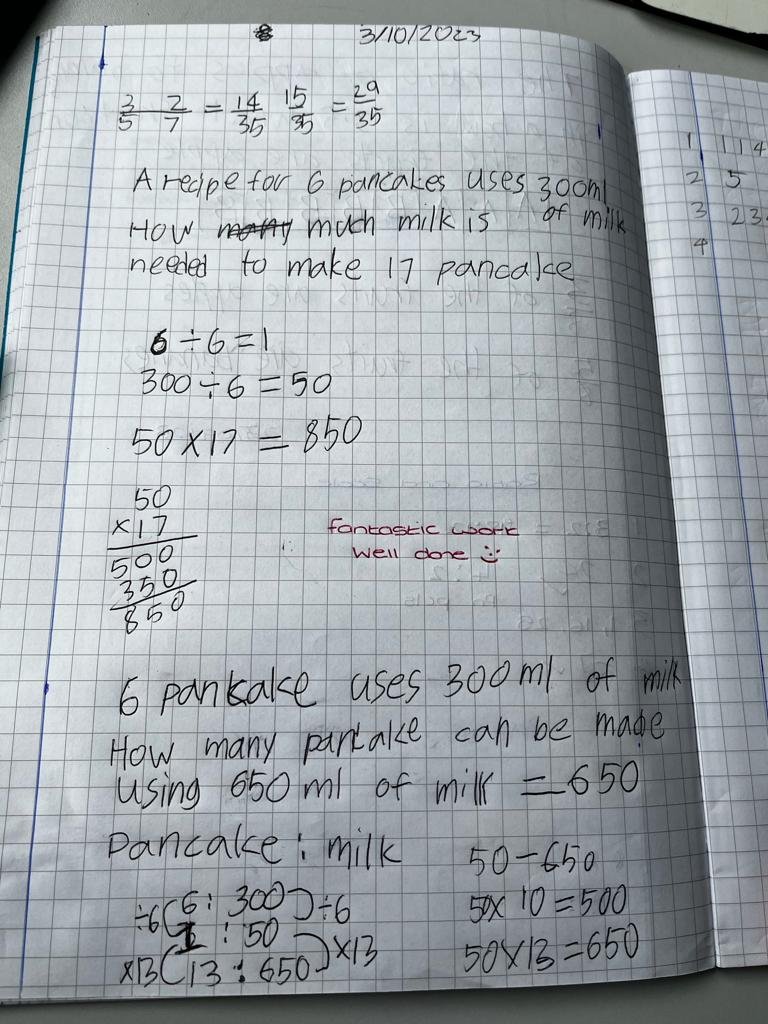 3/10/2023
3/5 2/7 = 14/35 15/35 = 29/35
A recipe for 6 pancakes uses 300ml
of milk
How many much milk is
needed to make 17 pancake
6 ÷ 6 = 1
300 ÷ 6 = 50
50 × 17 = 850
50
×17
500
350
850
fantastic work
well done
6 pankake uses 300 ml of milk
How many pankake can be made
using 650 ml of milk = 650
Pancake : milk
÷6 6 : 300 ÷6
1 : 50
×13 13 : 650 ×13
50-650
50× 10 = 500
50×13 = 650
1 114
2 5
3 23
4